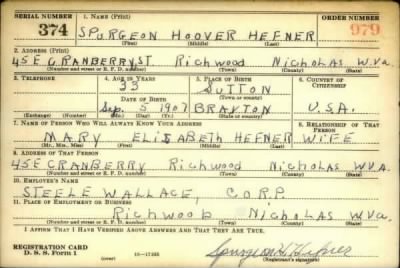 SERIAL NUMBER 1. NAME (Print) ORDER NUMBER
374 SPURGEON HOOVER HEFNER 979
(First) (Middle) (Last)
2. ADDRESS (Print)
45 E CRANBERRY ST Richwood Nicholas W.Va.
(Number and street or R. F. D. number) (Town) (County) (State)
3. TELEPHONE 4. AGE IN YEARS 5. PLACE OF BIRTH 6. COUNTRY OF CITIZENSHIP
33 SUTTON
(Town or county)
DATE OF BIRTH
Sep. 5 1907 BRAXTON U.S.A.
(Exchange) (Number) (Mo.) (Day) (Yr.) (State or country)
7. NAME OF PERSON WHO WILL ALWAYS KNOW YOUR ADDRESS 8. RELATIONSHIP OF THAT PERSON
MARY ELISABETH HEFNER WIFE
(Mr., Mrs., Miss) (First) (Middle) (Last)
9. ADDRESS OF THAT PERSON
45 E CRANBERRY Richwood Nicholas W VA.
(Number and street or R. F. D. number) (Town) (County) (State)
10. EMPLOYER'S NAME
STEELE WALLACE, CORP
11. PLACE OF EMPLOYMENT OR BUSINESS
Richwood Nicholas W.Va.
(Number and street or R. F. D. number) (Town) (County) (State)
I AFFIRM THAT I HAVE VERIFIED ABOVE ANSWERS AND THAT THEY ARE TRUE.
REGISTRATION CARD
D. S. S. Form 1 (over) Spurgeon H Hefner
(Registrant's signature)